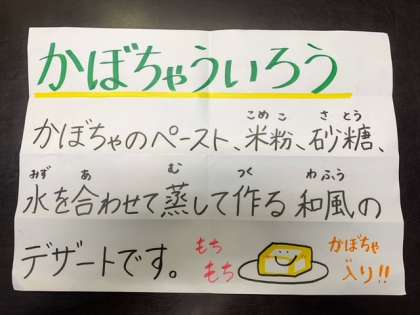 かぼちゃういろう
こめこ さとう
かぼちゃのペースト、米粉、砂糖、
みず あ む つく わふう
水を合わせて蒸して作る和風の
デザートです。
もち
もち
かぼちゃ
入り!!